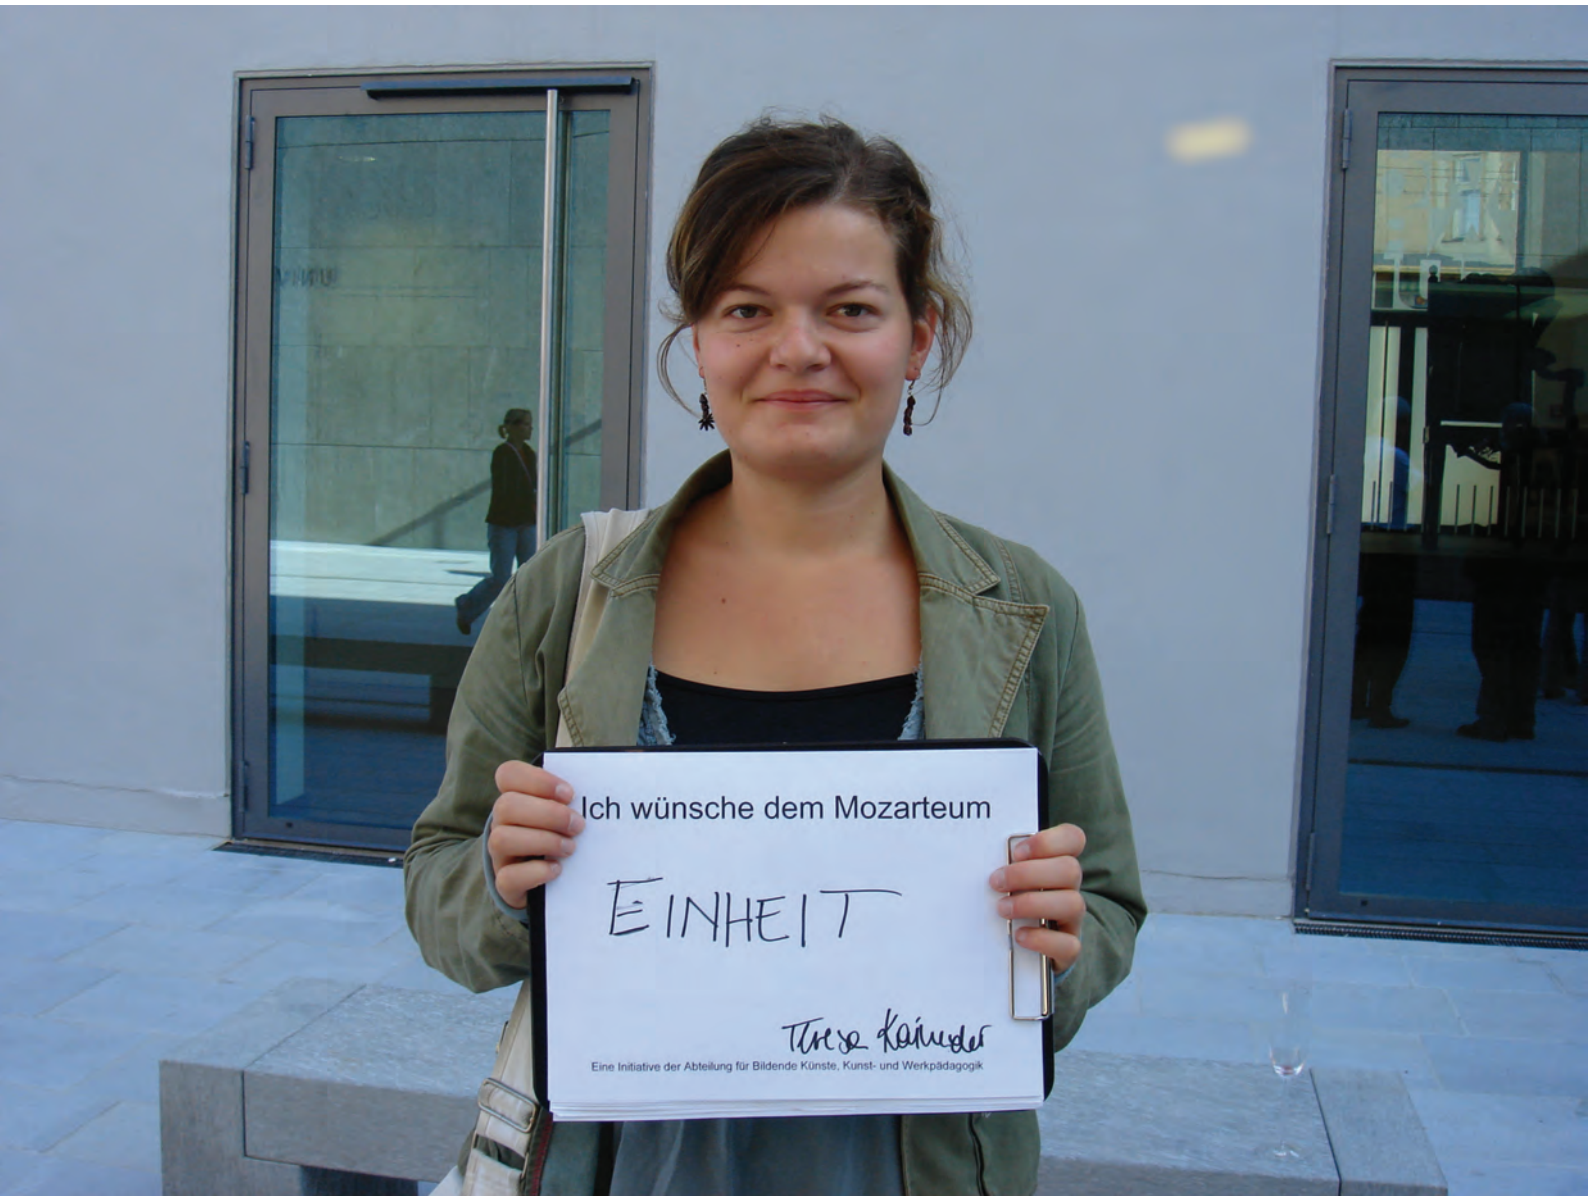 Ich wünsche dem Mozarteum
EINHEIT
Eine Initiative der Abteilung für Bildende Künste, Kunst- und Werkpädagogik